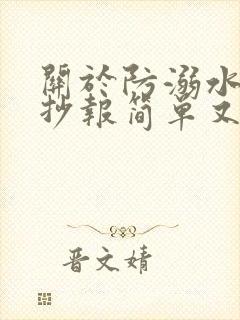 關於防溺水
抄報简單又
晋文婧